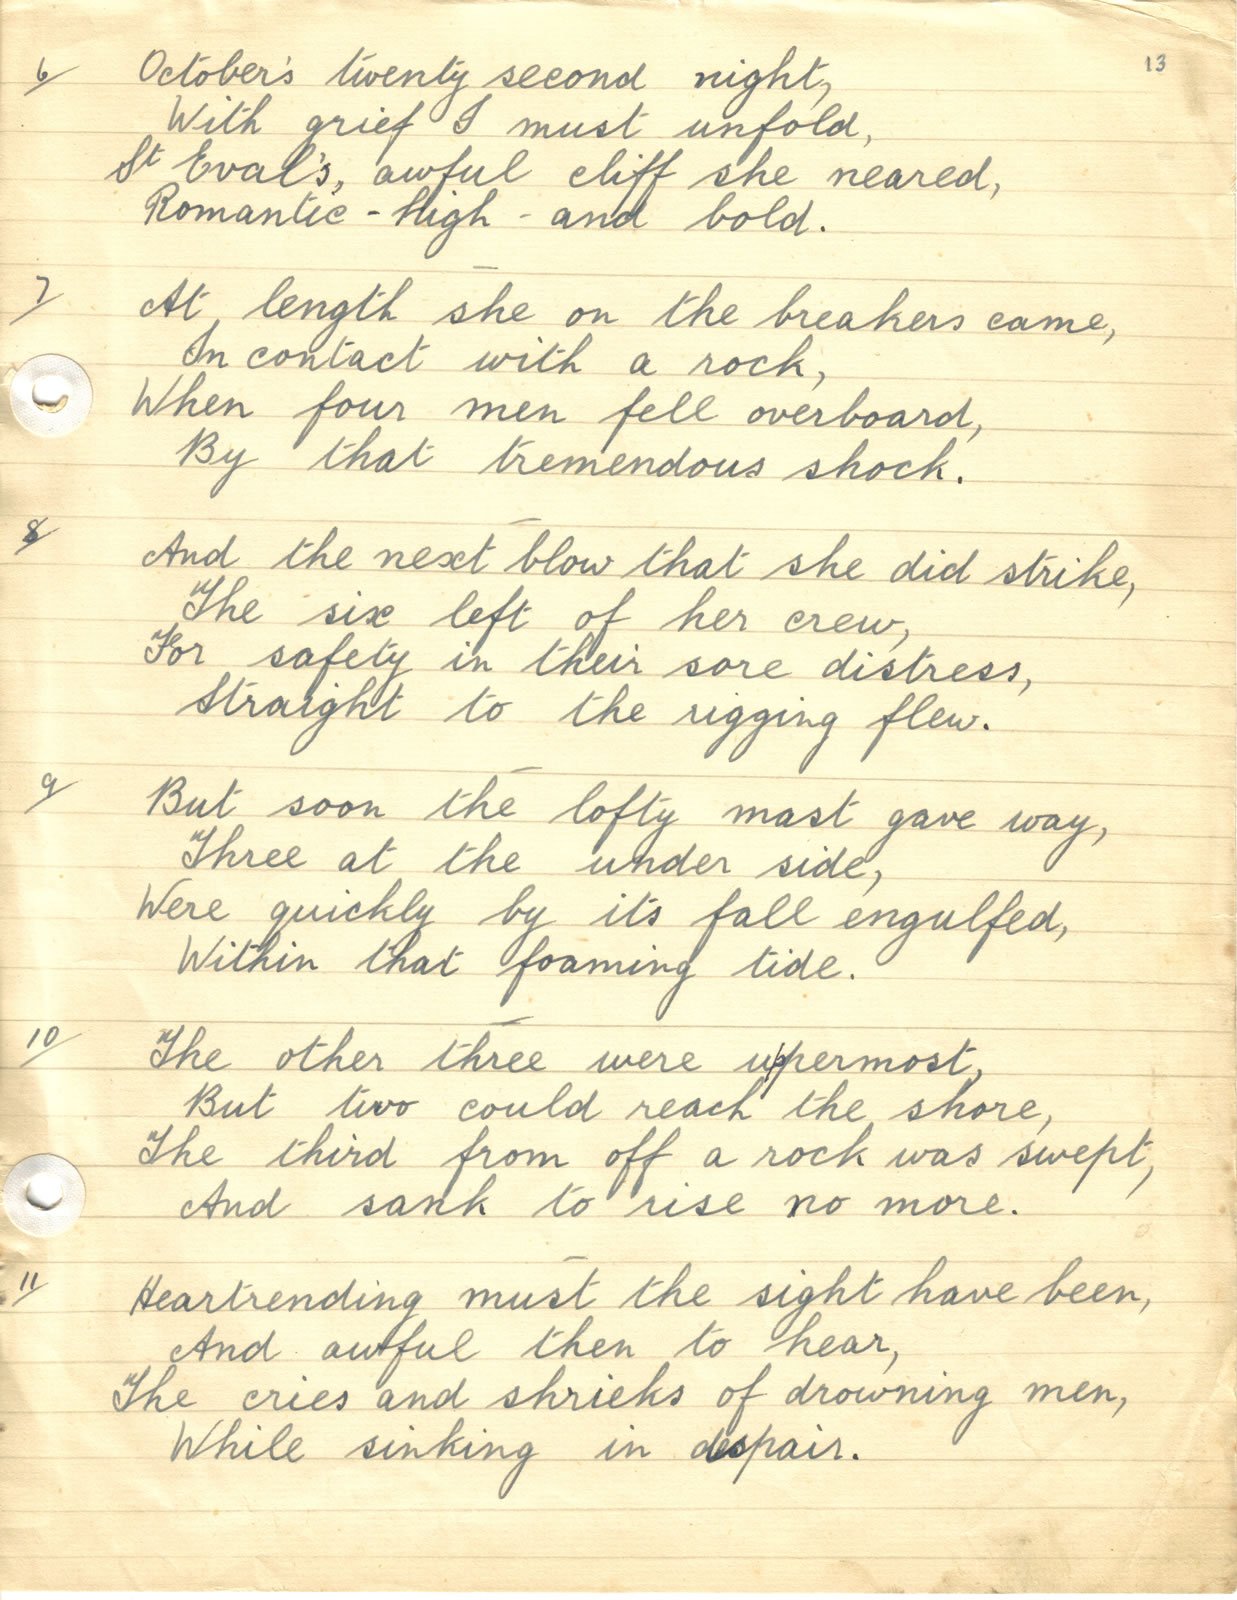 13
6/ October's twenty second night,
With grief I must unfold,
St Eval's, awful cliff she neared,
Romantic - high - and bold.
7/ At length she on the breakers came,
In contact with a rock,
When four men fell overboard,
By that tremendous shock.
8/ And the next blow that she did strike,
The six left of her crew,
For safety in their sore distress,
Straight to the rigging flew.
9/ But soon the lofty mast gave way,
Three at the under side,
Were quickly by its fall engulfed,
Within that foaming tide.
10/ The other three were uppermost,
But two could reach the shore,
The third from off a rock was swept,
And sank to rise no more.
11/ Heartrending must the sight have been,
And awful then to hear,
The cries and shrieks of drowning men,
While sinking in despair.